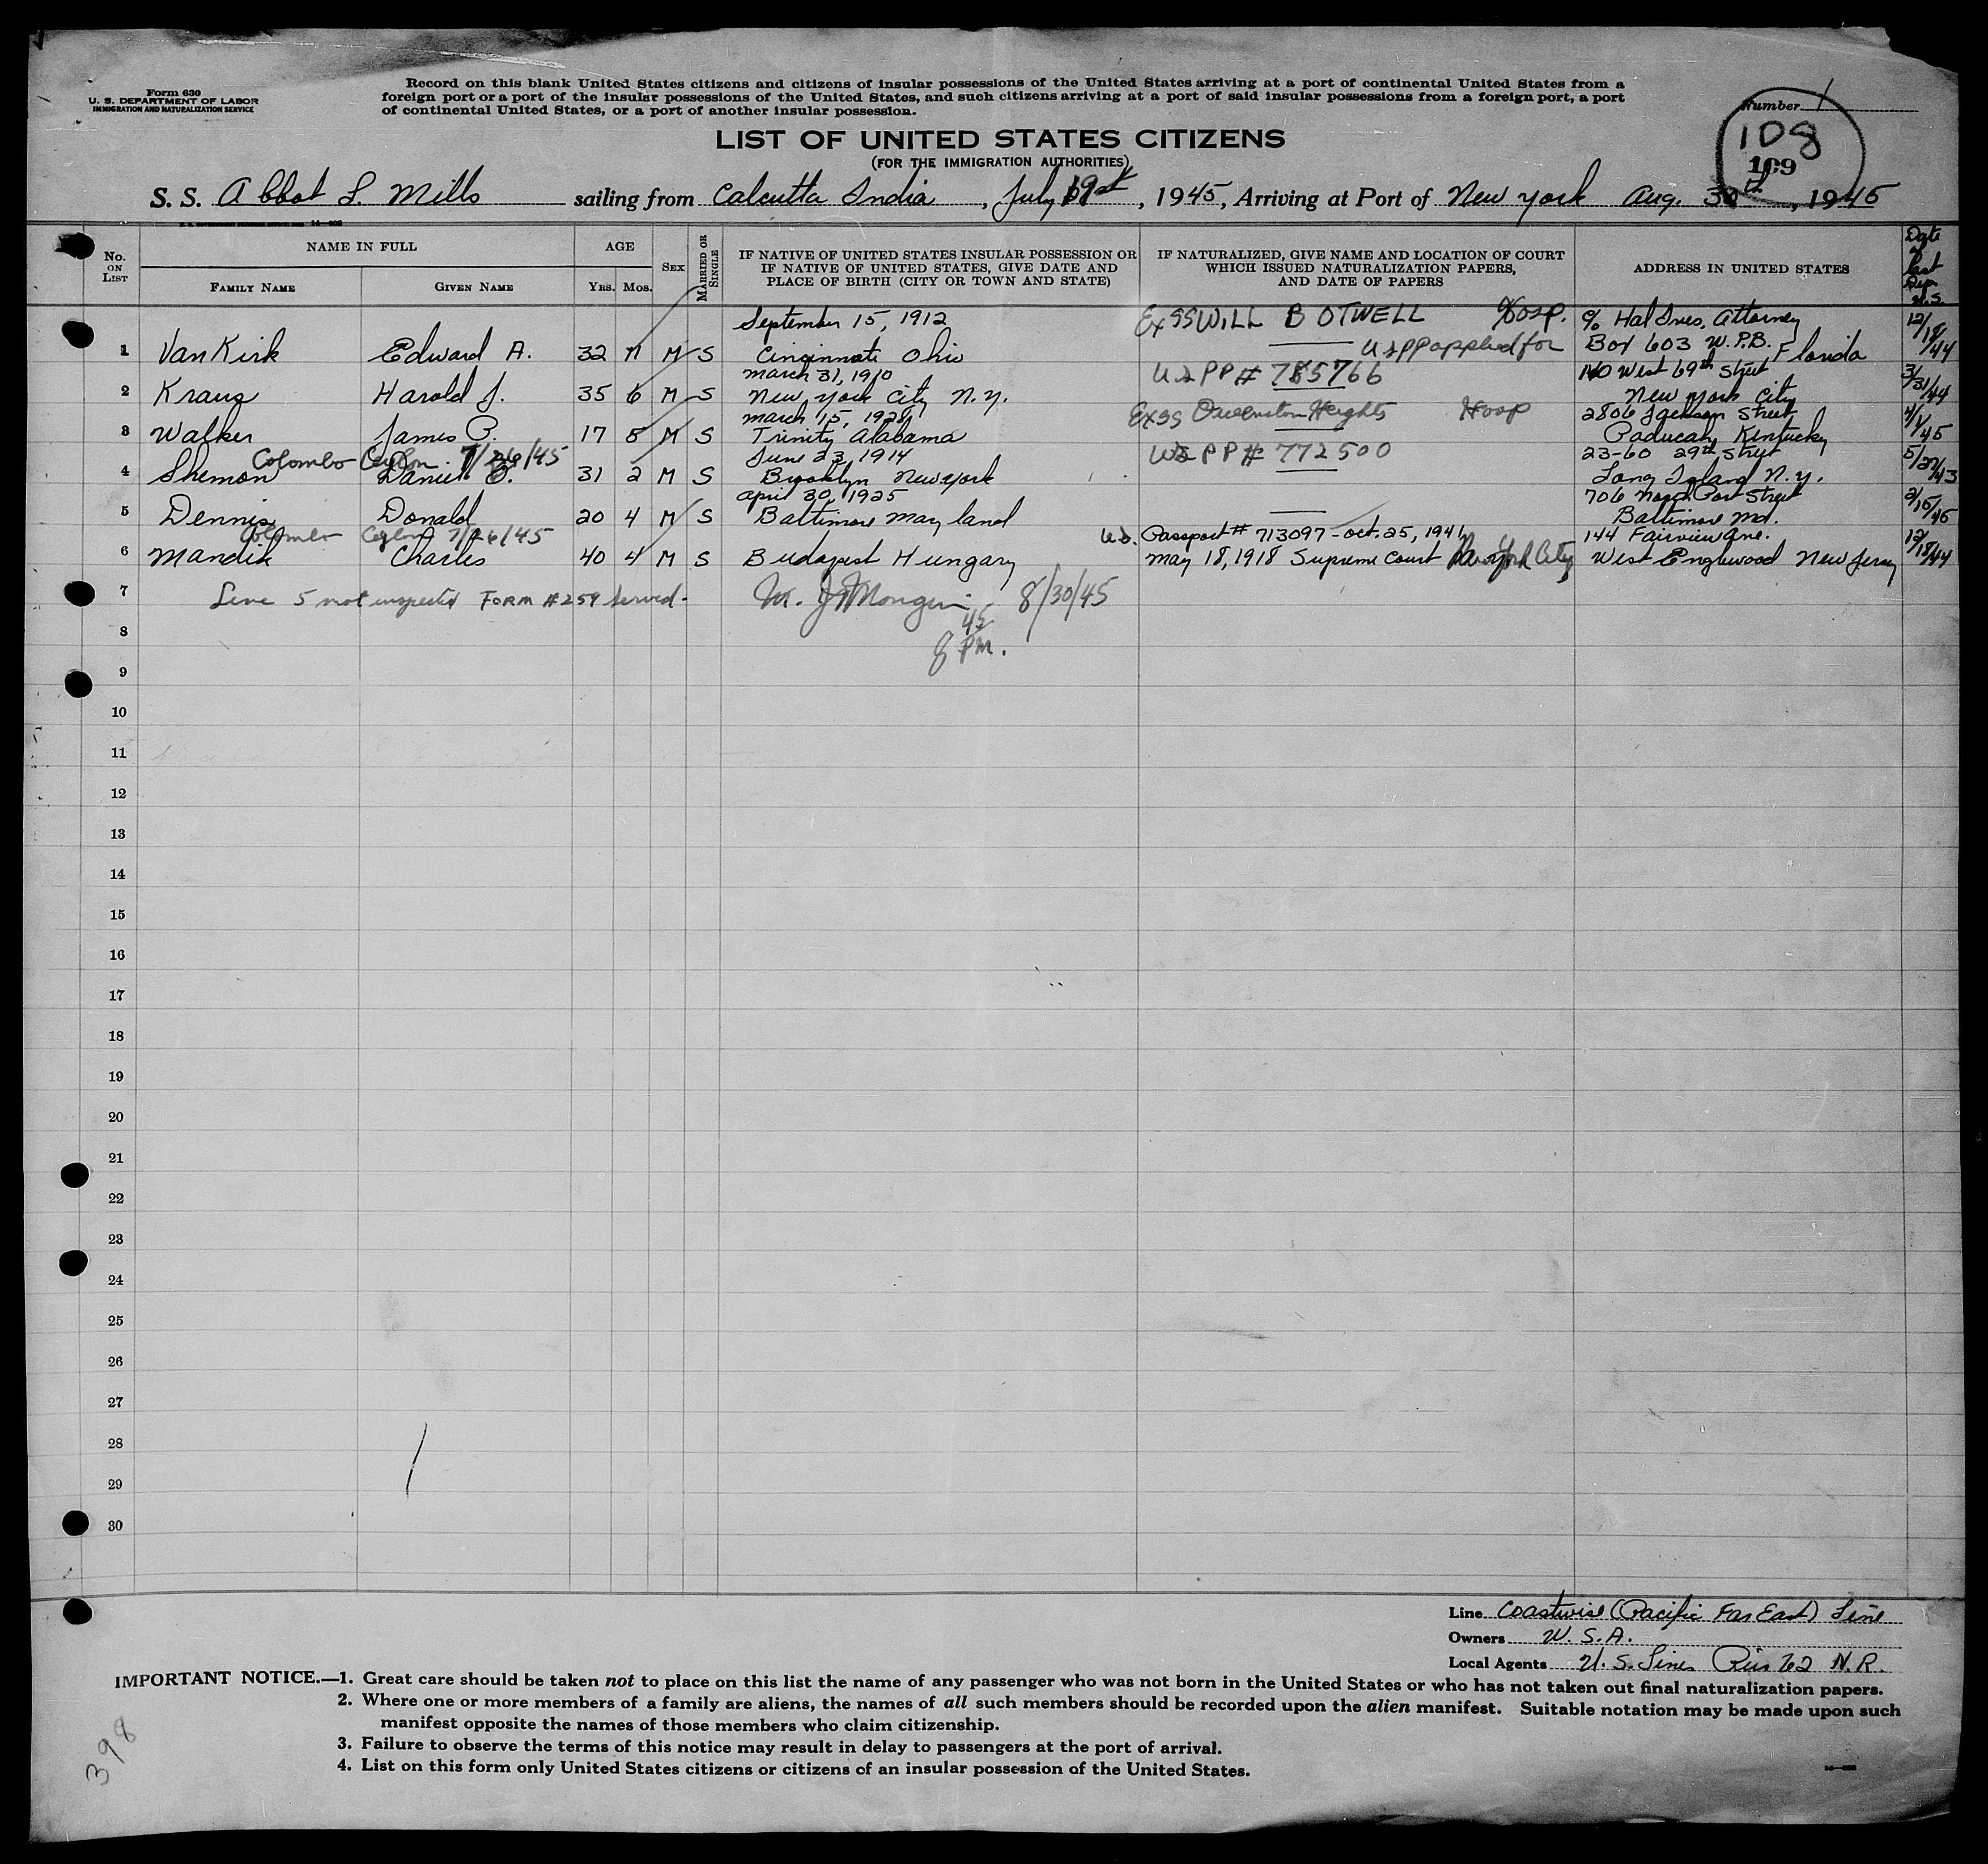 Form 630
U. S. DEPARTMENT OF LABOR
IMMIGRATION AND NATURALIZATION SERVICE
Record on this blank United States citizens and citizens of insular possessions of the United States arriving at a port of continental United States from a
foreign port or a port of the insular possessions of the United States, and such citizens arriving at a port of said insular possessions from a foreign port, a port
of continental United States, or a port of another insular possession.
Number 1
108
109
LIST OF UNITED STATES CITIZENS
(FOR THE IMMIGRATION AUTHORITIES)
S. S. Abbot L. Mills sailing from Calcutta India, July 19, 1945, Arriving at Port of New York Aug. 30, 1945
No. ON LIST
NAME IN FULL
FAMILY NAME
GIVEN NAME
AGE
YRS. MOS.
SEX
MARRIED OR SINGLE
IF NATIVE OF UNITED STATES INSULAR POSSESSION OR
IF NATIVE OF UNITED STATES, GIVE DATE AND
PLACE OF BIRTH (CITY OR TOWN AND STATE)
IF NATURALIZED, GIVE NAME AND LOCATION OF COURT
WHICH ISSUED NATURALIZATION PAPERS,
AND DATE OF PAPERS
ADDRESS IN UNITED STATES
Date of last Dep. U.S.
September 15, 1912 Ex SS WILL B OTWELL Hosp. c/o Hal Ives, Attorney
1 Van Kirk Edward A. 32 11 M S Cincinnati Ohio US PP applied for Box 603 W.P.B. Florida 12/18/44
March 31, 1910 US PP # 785766 140 West 69th Street
2 Kraus Harold J. 35 6 M S New York City N.Y. New York City 3/31/44
March 15, 1928 Ex SS Owensboro Heights Hosp 2806 Jackson Street
3 Walker James P. 17 5 M S Trinity Alabama Paducah, Kentucky 4/1/45
Colombo Ceylon 7/26/45 June 23, 1914 US PP # 772500 23-60 29th Street
4 Shemon Daniel 31 2 M S Brooklyn New York Long Island N.Y. 5/27/43
April 30, 1925 706 North Port Street
5 Dennis Donald 20 4 M S Baltimore Maryland Baltimore Md. 2/15/45
Colombo Ceylon 7/26/45 U.S. Passport # 713097 - Oct. 25, 1941 144 Fairview Ave.
6 Mandik Charles 40 4 M S Budapest Hungary May 18, 1918 Supreme Court New York City West Englewood New Jersey 12/18/44
7 Line 5 not inspected FORM # 259 served - 8/30/45
8 8 45 PM.
9
10
11
12
13
14
15
16
17
18
19
20
21
22
23
24
25
26
27
28
29
30
Line Coastwise (Pacific Far East) Line
Owners W. S. A.
Local Agents U. S. Lines Pier 62 N.R.
IMPORTANT NOTICE.—1. Great care should be taken not to place on this list the name of any passenger who was not born in the United States or who has not taken out final naturalization papers.
2. Where one or more members of a family are aliens, the names of all such members should be recorded upon the alien manifest. Suitable notation may be made upon such
manifest opposite the names of those members who claim citizenship.
3. Failure to observe the terms of this notice may result in delay to passengers at the port of arrival.
4. List on this form only United States citizens or citizens of an insular possession of the United States.
398